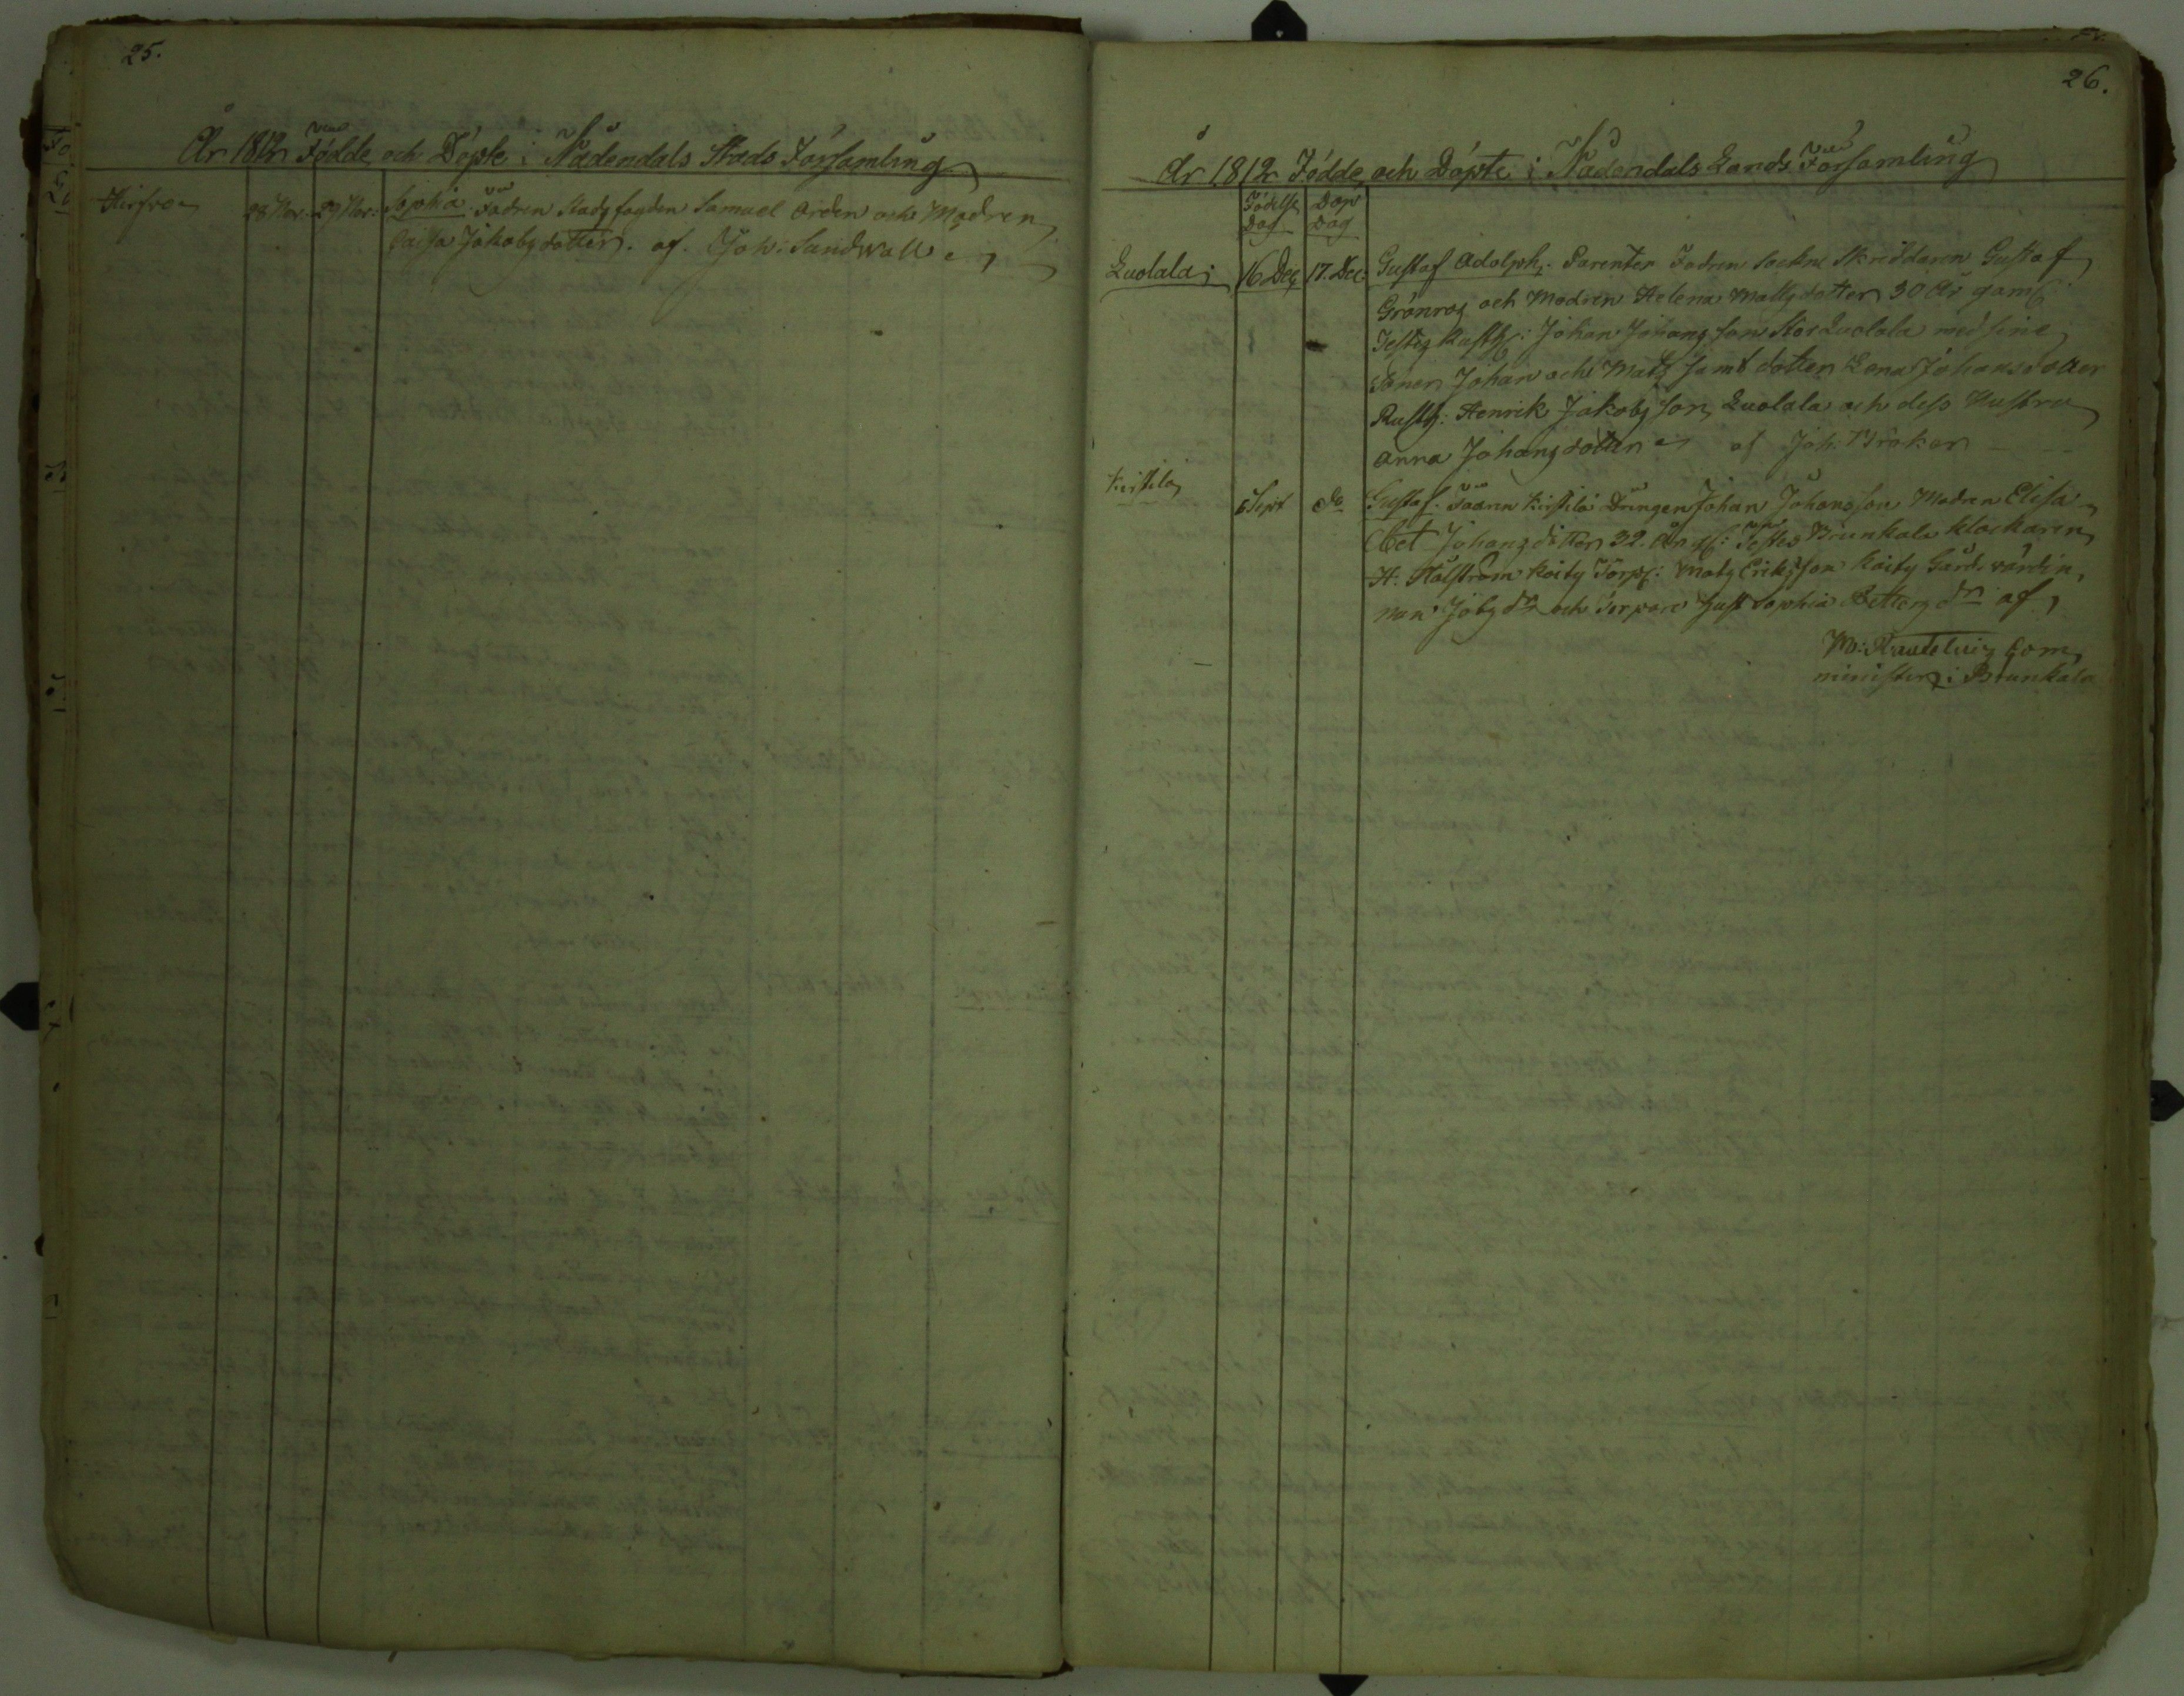 25.
År 1812 Födde och Döpte i Nådendals Stads Församling
28 Nov: 29 Nov: Sophia. Fadren Stadz fogden Samuel Arden och Modren
Caisa Jakobz dotter. af. Joh: Sandwall
26.
År 1812 Födde och Döpte i Nådendals Lands Församling
Födelse Dag Dop Dag
Luolala; 16 Dec; 17. Dec: Gustaf Adolph. Parenter Fadren Sockne Skräddaren Gustaf
Grönroz och Modren Helena Mattz dotter 30 År gam:
Testez Rusth: Johan Johanz son Stor Luolala med sine
Söner Johan och Matz samt dotter Lena Johansdotter
Rusth: Henrik Jakobz son Luolala och dess Hustru
Anna Johanz dotter af Joh: Bröker
Kirstila 6 Sept do Gustaf. Fadren Kirstila Drängen Johan Johansson Modren Elisa-
bet Johanz dotter 32. År gl: Testes Brunkala klockaren
H: Hälström Koity Torp: Matz Erikz son Koity Gårds värdin,
nan Jobz dr och Torpare Hust Sophia dr af
M: Rautelius Com,
minister i Brunkala